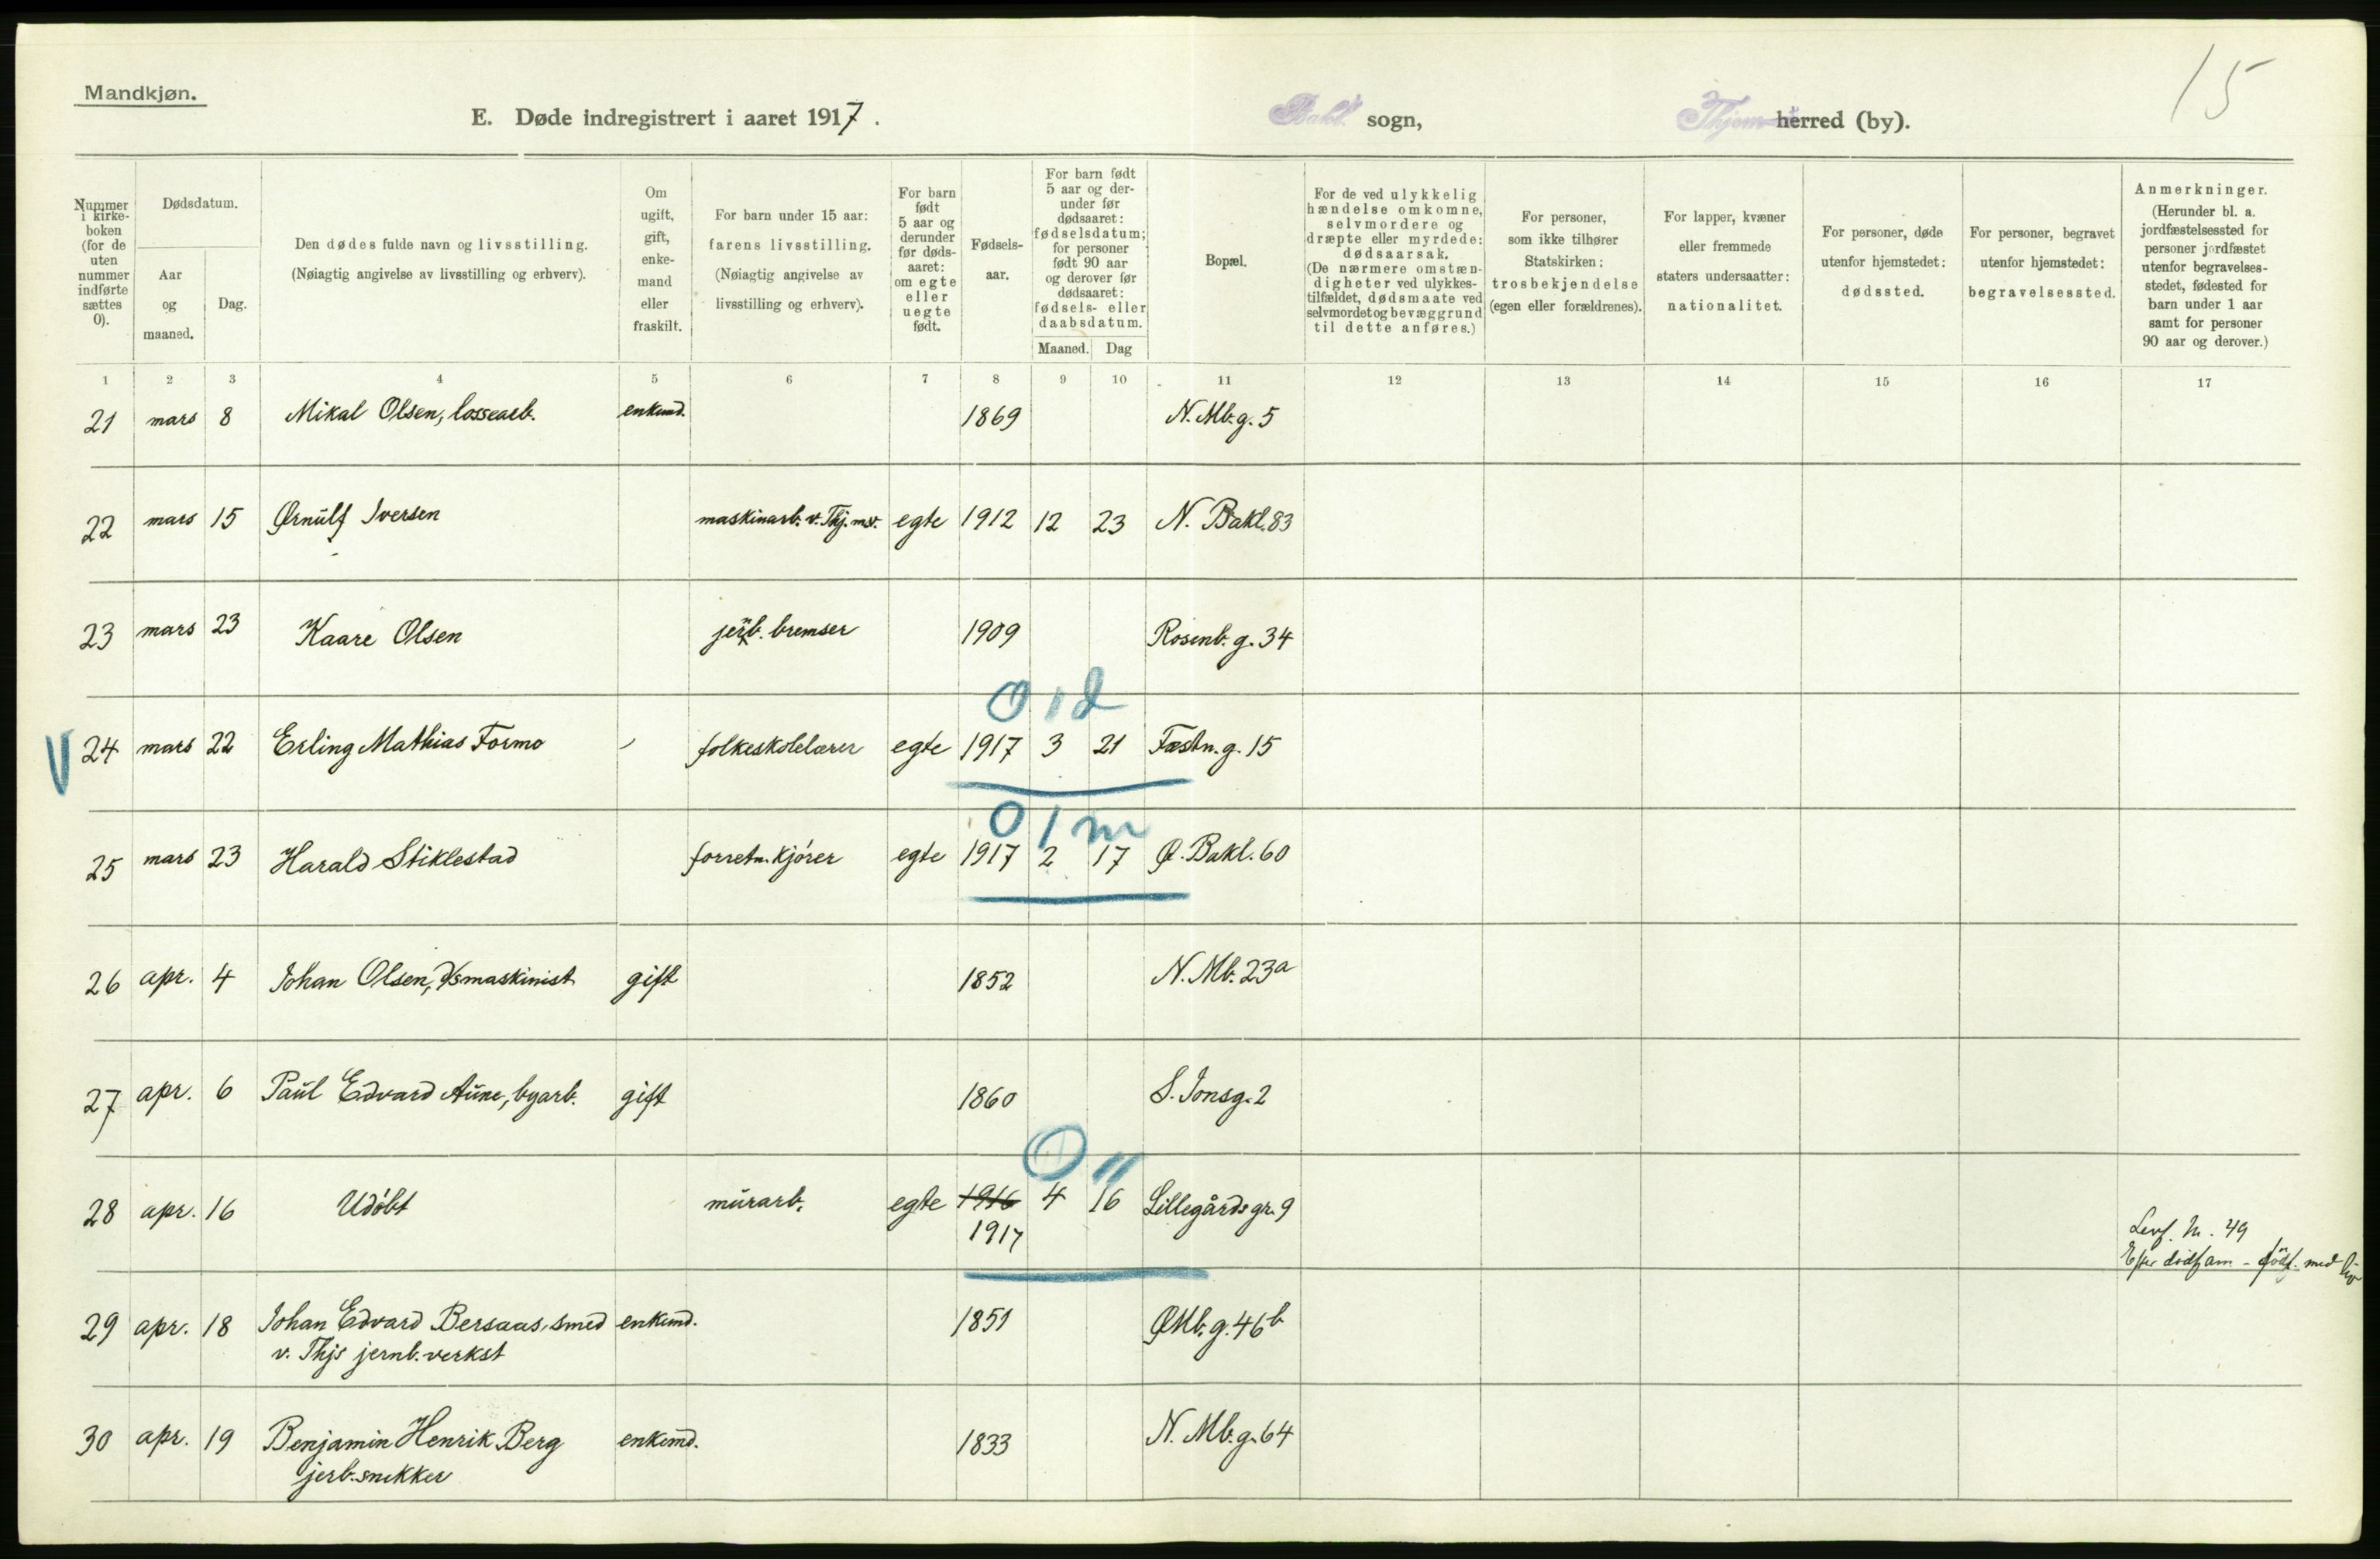 15
Mandkjøn.
E. Døde indregistrert i aaret 1917.
Bakl. sogn,
Thjem herred (by).
Nummer i kirkeboken (for de uten nummer indførte sættes 0).
Dødsdatum.
Aar og maaned.
Dag.
Den dødes fulde navn og livsstilling.
(Nøiagtig angivelse av livsstilling og erhverv).
Om ugift, gift, enkemand eller fraskilt.
For barn under 15 aar: farens livsstilling.
(Nøiagtig angivelse av livsstilling og erhverv).
For barn født 5 aar og derunder før dødsaaret: om egte eller uegte født.
Fødselsaar.
For barn født 5 aar og derunder før dødsaaret: fødselsdatum; for personer født 90 aar og derover før dødsaaret: fødsels- eller daabsdatum.
Maaned. Dag
Bopæl.
For de ved ulykkelig hændelse omkomne, selvmordere og dræpte eller myrdede: dødsaarsak.
(De nærmere omstændigheter ved ulykkestilfældet, dødsmaate ved selvmordet og bevæggrund til dette anføres.)
For personer, som ikke tilhører Statskirken: trosbekjendelse (egen eller forældrenes).
For lapper, kvæner eller fremmede staters undersaatter: nationalitet.
For personer, døde utenfor hjemstedet: dødssted.
For personer, begravet utenfor hjemstedet: begravelsessted.
Anmerkninger.
(Herunder bl. a. jordfæstelsessted for personer jordfæstet utenfor begravelsesstedet, fødested for barn under 1 aar samt for personer 90 aar og derover.)
1 2 3 4 5 6 7 8 9 10 11 12 13 14 15 16 17
21 mars 8 Mikal Olsen, lossearb. enkemd. 1869 N. Mb.g. 5
22 mars 15 Ørnulf Iversen maskinarb. v. Thj. m.v. egte 1912 12 23 N. Bakl. 83
23 mars 23 Kaare Olsen jernb. bremser 1909 Rosenb. g. 34
0 1 d
V 24 mars 22 Erling Mathias Formo folkeskolelærer egte 1917 3 21 Fæstn. g. 15
0 1 m
25 mars 23 Harald Stiklestad forretn. kjører egte 1917 2 17 Ø. Bakl. 60
26 apr. 4 Johan Olsen, d/s maskinist gift 1852 N. Mb. 23a
27 apr. 6 Paul Edvard Aune, byarb. gift 1860 S. Jonsg. 2
0 "
28 apr. 16 Udøbt murarb. egte 1916 4 16 Lillegårdsgr. 9
1917
Levf. Nr. 49
Efter dødsam - födf. med liv
29 apr. 18 Johan Edvard Bersaas, smed enkemd. 1851 Ø Mb. g. 46b
v. Thjs jernb. verkst
30 apr. 19 Benjamin Henrik Berg enkemd. 1833 N. Mb. g. 64
jerb. snekker